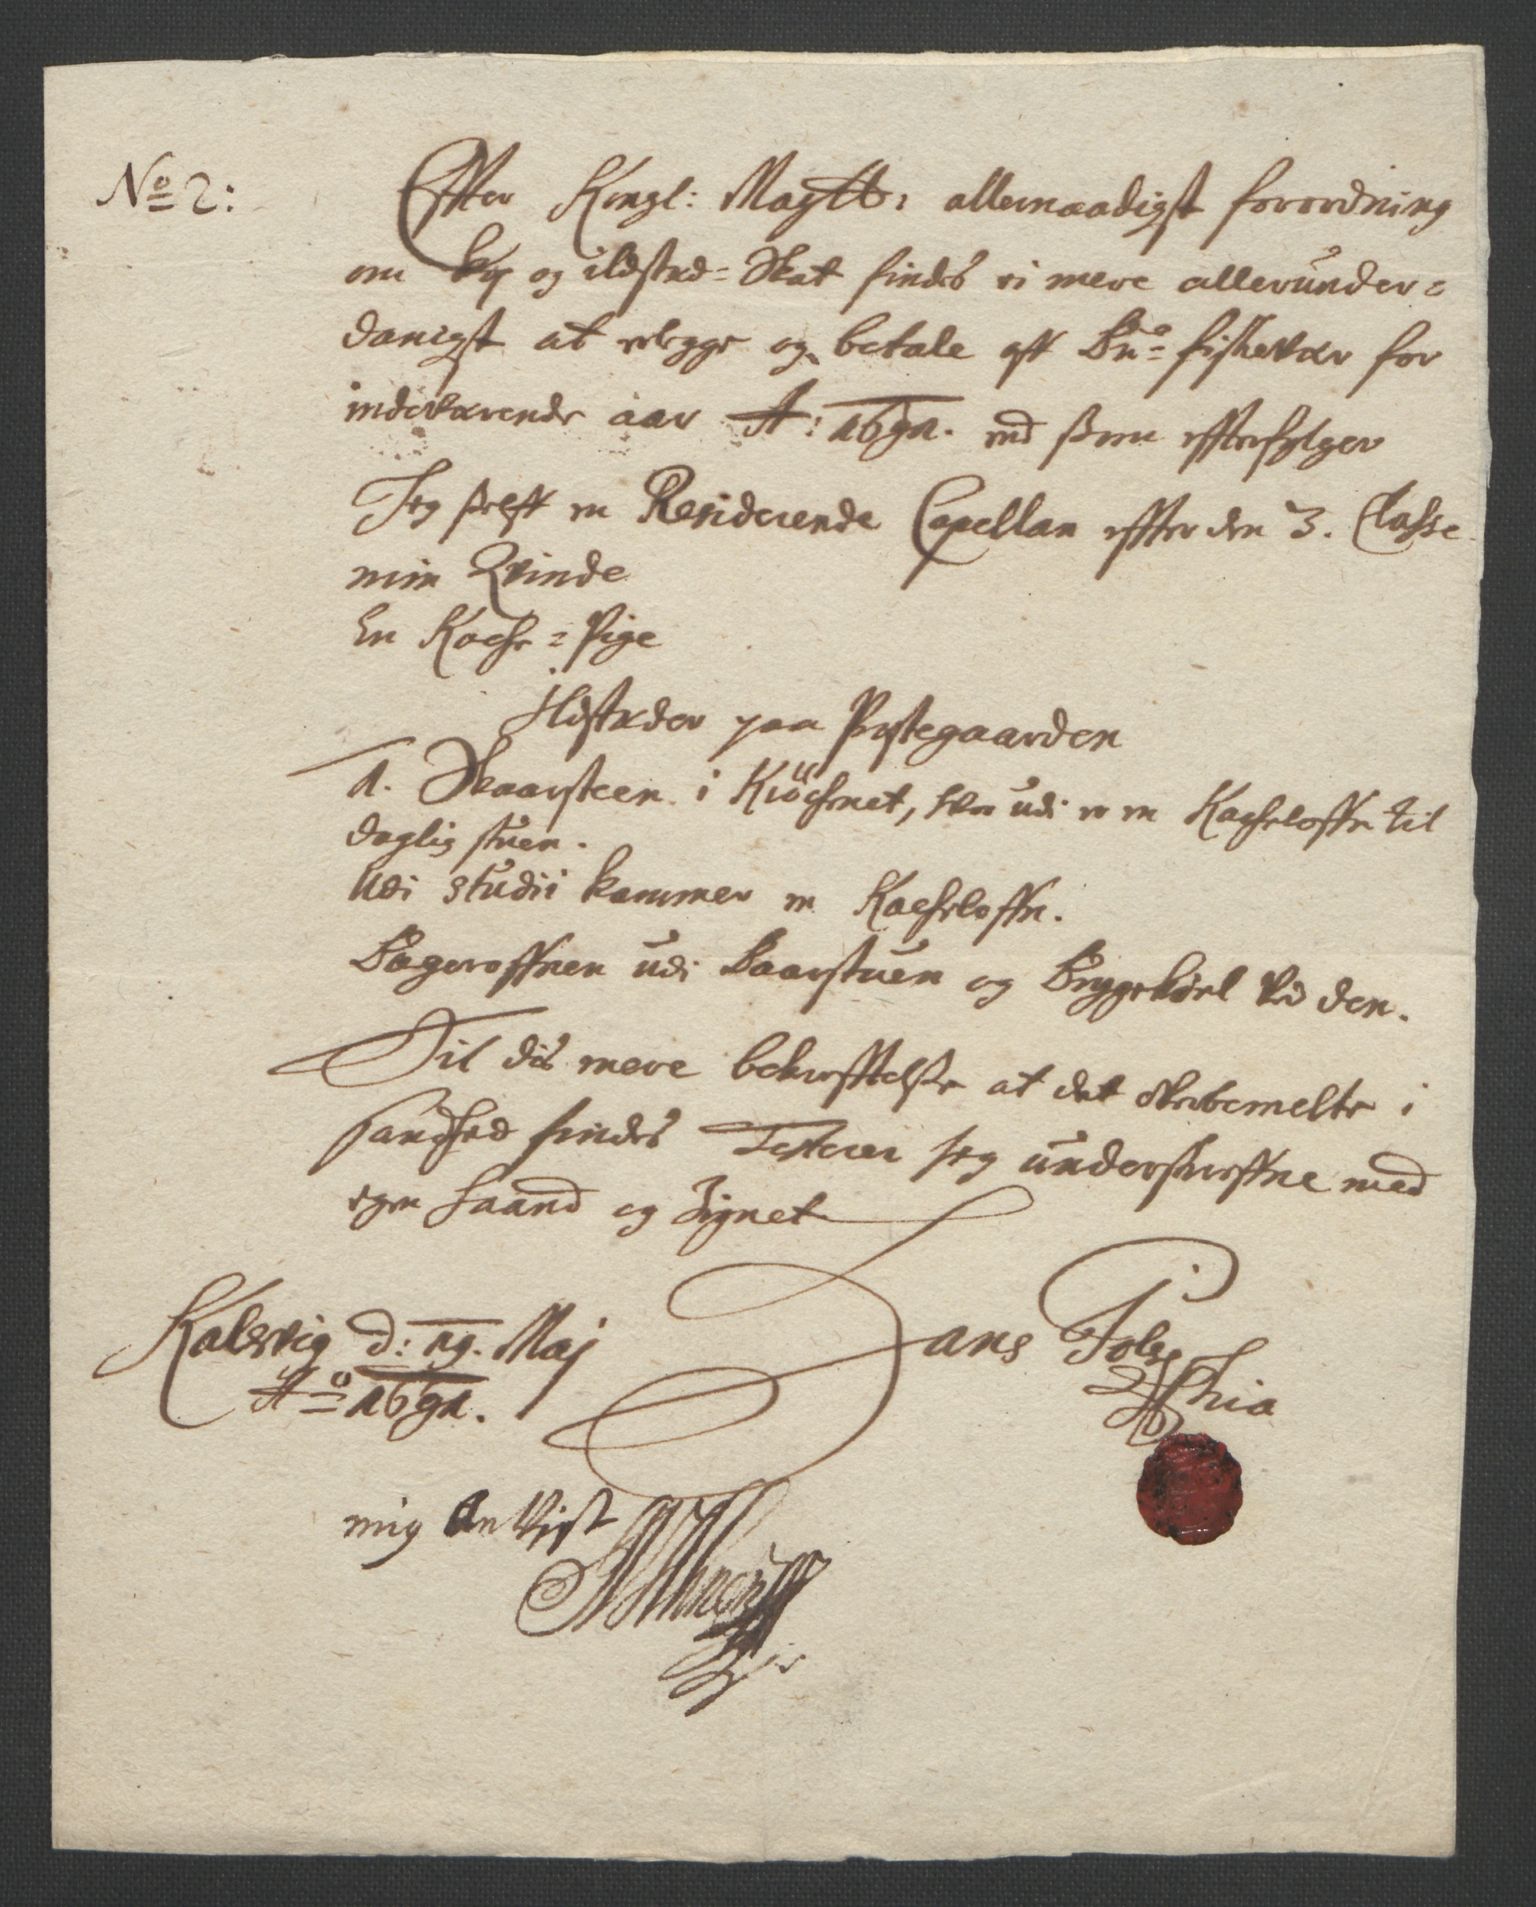 No 2:
Efter Kongl: Maytt: allernaadigst forordning
om kop og ildsted= Skat findes vi mere allerunder=
danigst at erlegge og betale aff Bu= fiskevær for
indeværende aar A: 1691. end som efterfølger
Jeg self en Residerende Capellan effter den 3. Classe
min Qvinde
En Kocke= Pige
Ildsteder paa Prestegaarden
1. Skaarsteen i Kiöchenet, udi er en Kacheloffn til
daglig stuen.
Udi studii kammer en Kacheloffn.
Bageroffnen udi Baarstuen og Bryggekiel ved den.
Til dis mere bekreftelse at det i
sandhed findes Testerer jeg underskrefne med
egen haand og Zignet
Kalsvig d: 19. Maj
Ao 1691.
Hans
mig Anvist